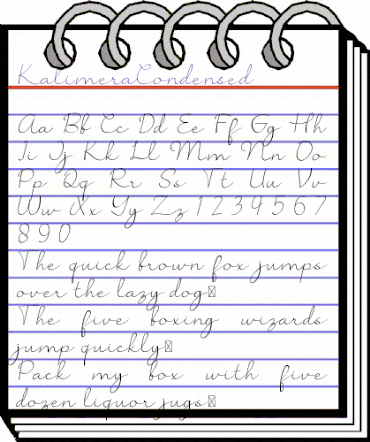 KalimeraCondensed
Aa Bb Cc Dd Ee Ff Gg Hh
Ii Jj Kk Ll Mm Nn Oo
Pp Qq Rr Ss Tt Uu Vv
Ww Xx Yy Zz 1 2 3 4 5 6 7
8 9 0
The quick brown fox jumps
over the lazy dog
The five boxing wizards
jump quickly
Pack my box with five
dozen liquor jugs